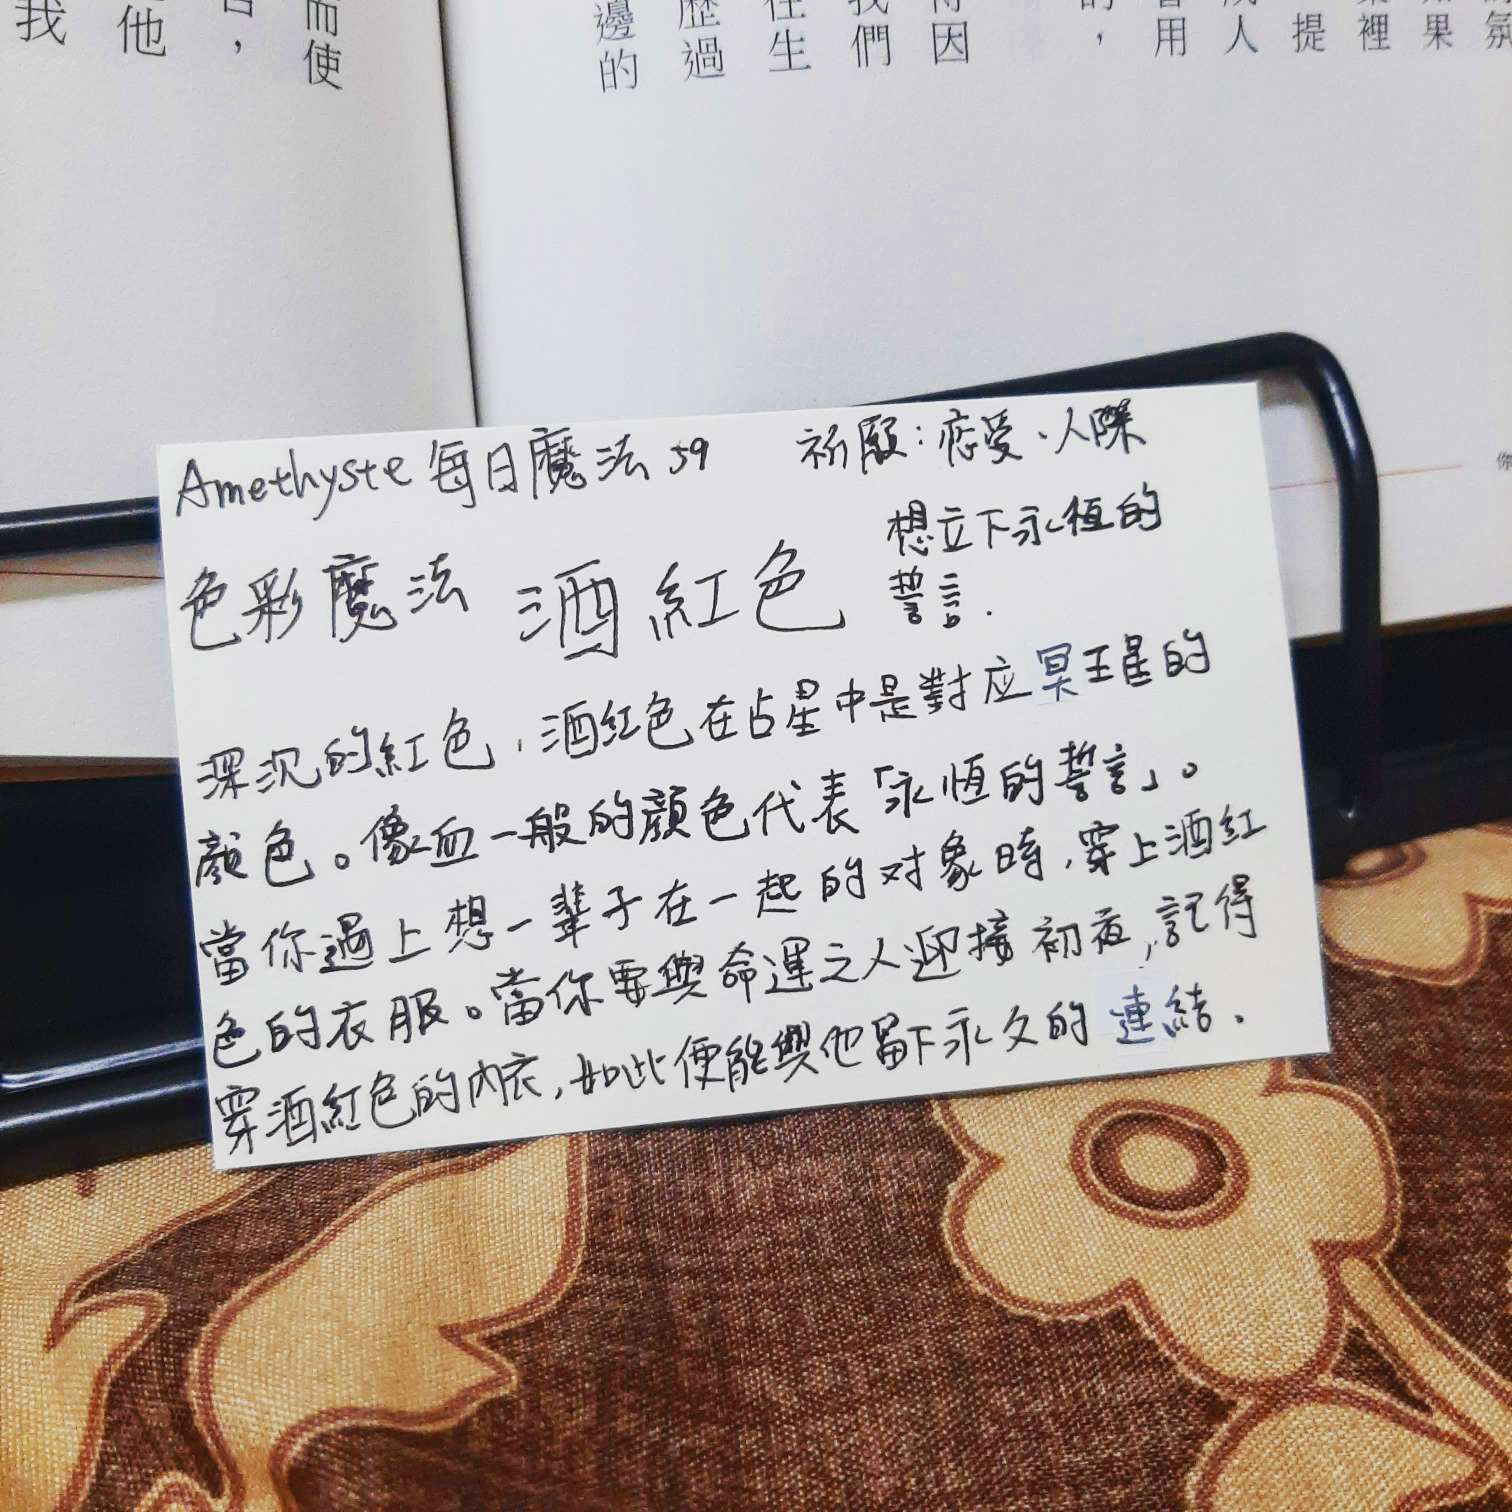 而使
他
我
氛
如果
業裡
提
成人
會用
的，
得因
我們
往生
歷過
邊的
Amethyste 每日魔法 59 祈願：恋愛、人際
色彩魔法 酒紅色 想立下永恆的
誓言.
深沉的紅色，酒紅色在占星中是對应冥王星的
顏色。像血一般的顏色代表「永恆的誓言」。
當你遇上想一輩子在一起的对象時，穿上酒紅
色的衣服。當你要與命運之人迎接初夜，記得
穿酒紅色的內衣，如此便能與他留下永久的連結.